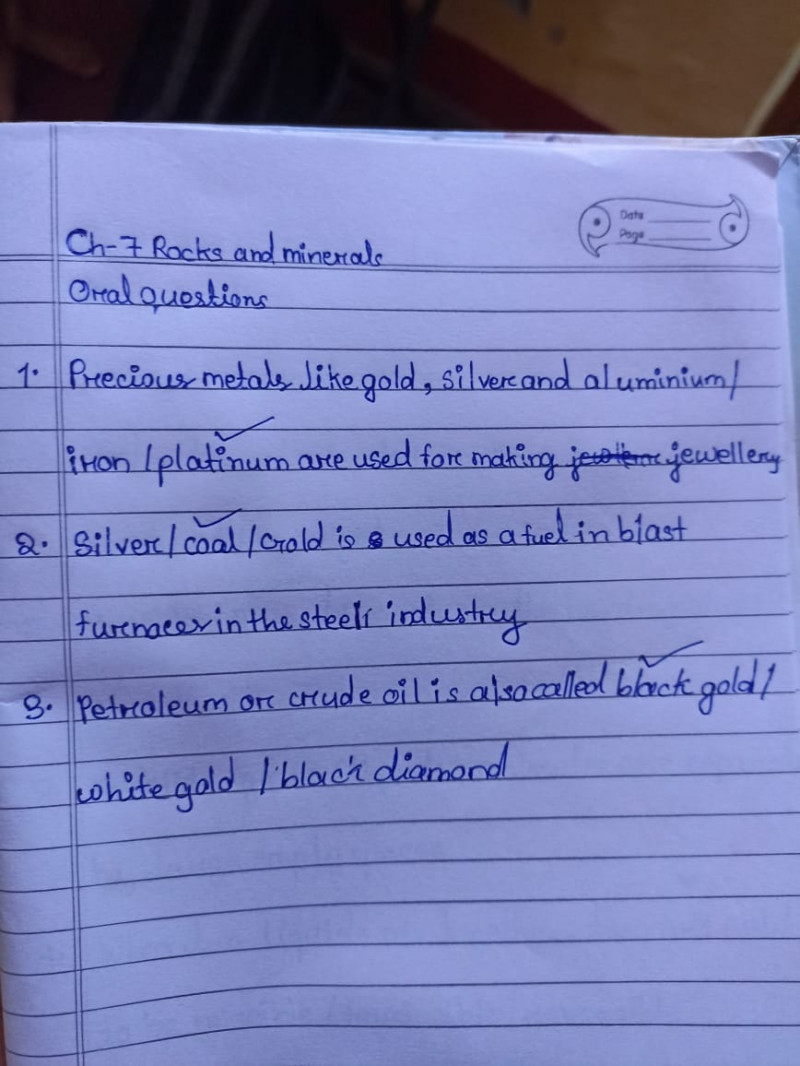 Date
Page
Ch-7 Rocks and minerals
Oral questions
1. Precious metals like gold, silver and aluminium/
iron/platinum are used for making jewellery
2. Silver/coal/Gold is used as a fuel in blast
furnaces in the steel industry
3. Petroleum or crude oil is also called black gold/
white gold / black diamond